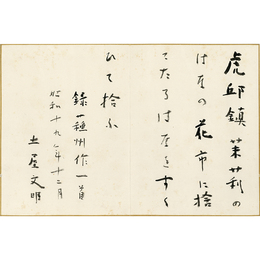 虎邱鎮茉莉の
はなの花市に捨
てたるはなをすく
ひて拾ふ
州作一首
昭和十九年十二月
土屋文明